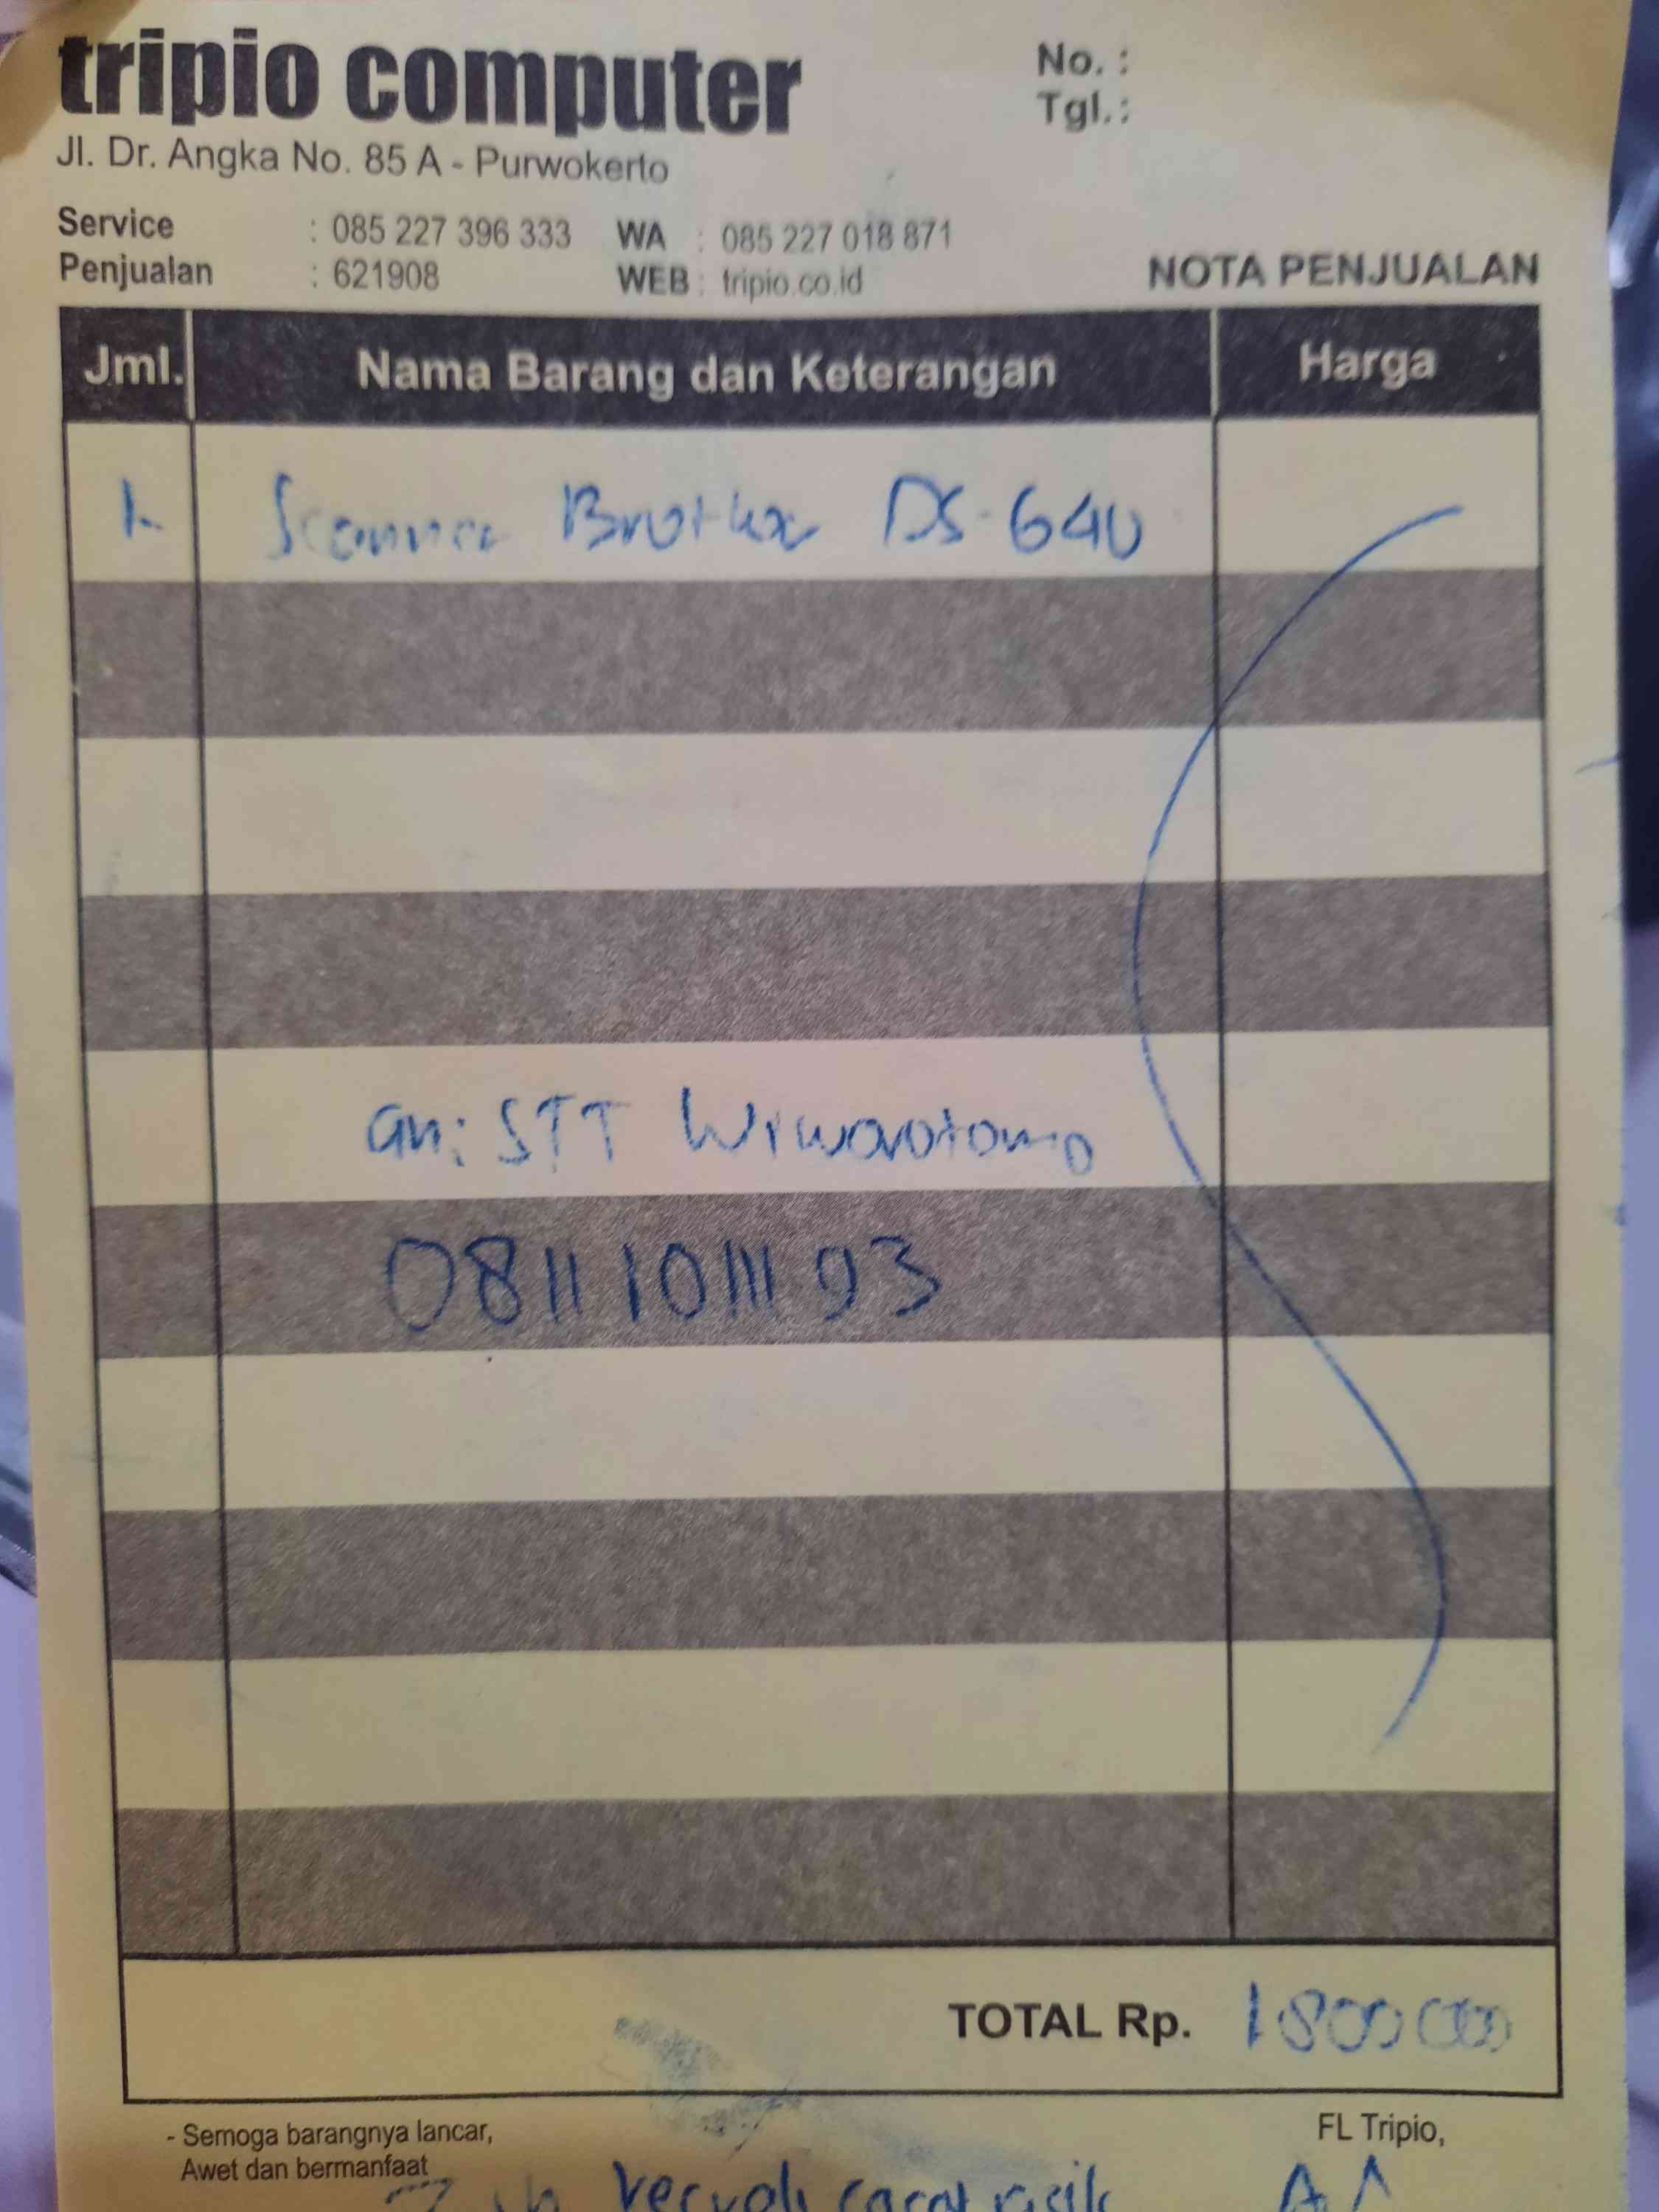 tripio computer
No. :
Tgl. :
Jl. Dr. Angka No. 85 A - Purwokerto
Service : 085 227 396 333 WA : 085 227 018 871
Penjualan : 621908 WEB : tripio.co.id
NOTA PENJUALAN
Jml. Nama Barang dan Keterangan Harga
1. Scanner Brother DS-640
an: STT Wiworotomo
081110111193
TOTAL Rp. 1800000
- Semoga barangnya lancar,
Awet dan bermanfaat
FL Tripio,
th kecuali cacat fisik